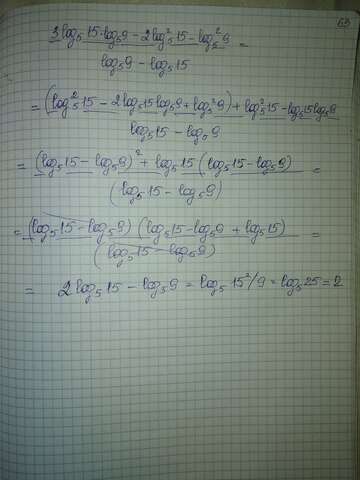 63
3log₅15·log₅9 - 2log₅²15 - log₅²9 / log₅9 - log₅15 =
= (log₅²15 - 2log₅15log₅9 + log₅²9) + log₅²15 - log₅15log₅9 / log₅15 - log₅9
= (log₅15 - log₅9)² + log₅15 (log₅15 - log₅9) / (log₅15 - log₅9) =
= (log₅15 - log₅9) (log₅15 - log₅9 + log₅15) / (log₅15 - log₅9) =
= 2log₅15 - log₅9 = log₅15²/9 = log₅25 = 2